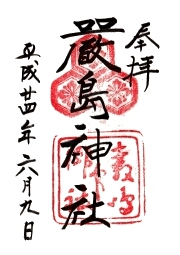 奉拝
厳島神社
平成廿四年六月九日